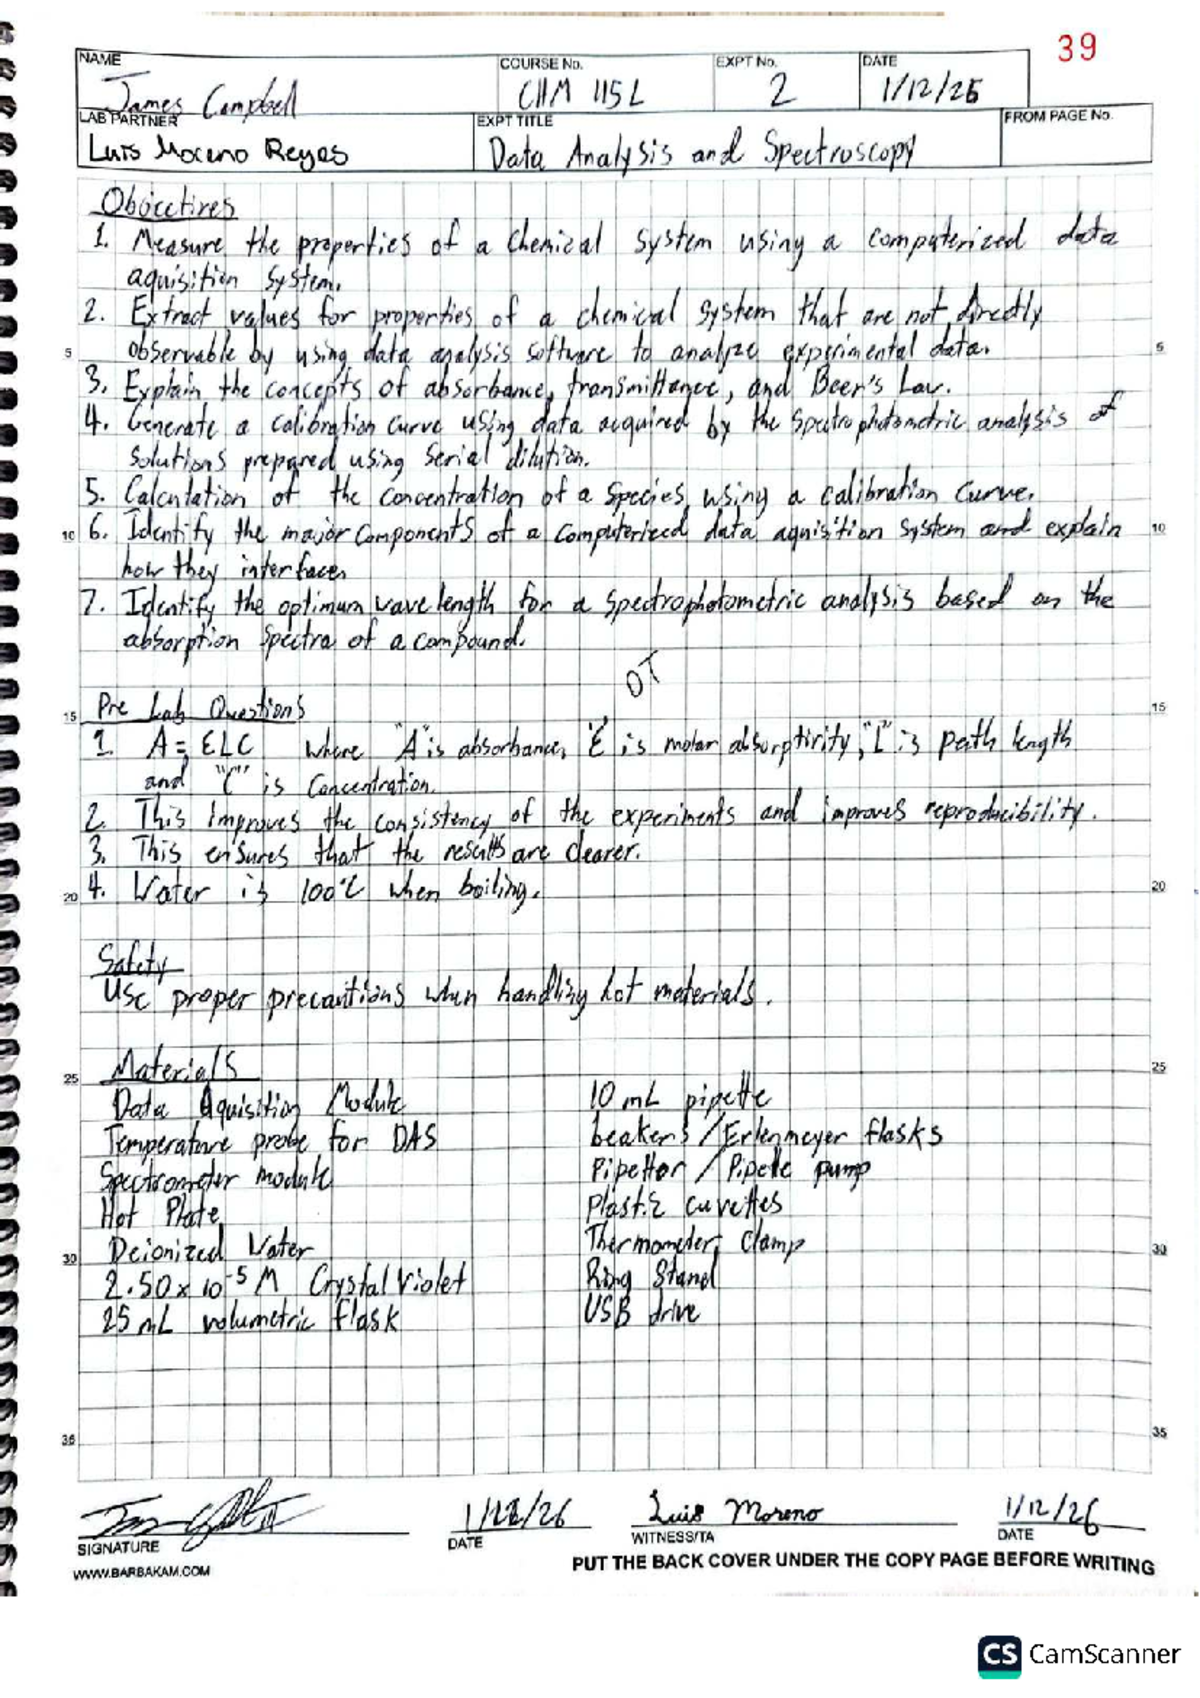 39
NAME
James Campbell
COURSE No.
CHM 115L
EXPT No.
2
DATE
1/12/26
LAB PARTNER
Luis Moreno Reyes
EXPT TITLE
Data Analysis and Spectroscopy
FROM PAGE No.
Objectives
1. Measure the properties of a Chemical System using a computerized data
aquisition system.
2. Extract values for properties of a chemical system that are not directly
5 observable by using data analysis software to analyze experimental data. 5
3. Explain the concepts of absorbance, transmittance, and Beer's Law.
4. Generate a calibration curve using data acquired by the spectrophotometric analysis of
solutions prepared using serial dilution.
5. Calculation of the concentration of a species using a calibration curve.
10 6. Identify the major components of a computerized data aquisition system and explain 10
how they interface.
7. Identify the optimum wavelength for a spectrophotometric analysis based on the
absorption spectra of a compound.
DT
15 Pre Lab Questions 15
1. A = ƐLC where "A" is absorbance, "Ɛ" is molar absorptivity, "L" is path length
and "C" is Concentration.
2. This improves the consistency of the experiments and improves reproducibility.
3. This ensures that the results are clearer.
20 4. Water is 100°C when boiling. 20
Safety
Use proper precautions when handling hot materials.
25 Materials 25
Data Aquisition Module 10 mL pipette
Temperature probe for DAS beakers / Erlenmeyer flasks
Spectrometer module Pipettor / Pipette pump
Hot Plate Plastic cuvettes
30 Deionized Water Thermometer clamp 30
2.50 x 10⁻⁵ M Crystal Violet Ring Stand
25 mL volumetric flask USB drive
35 35
SIGNATURE
1/12/26
DATE
Luis Moreno
WITNESS/TA
1/12/26
DATE
WWW.BARBAKAM.COM
PUT THE BACK COVER UNDER THE COPY PAGE BEFORE WRITING
CS CamScanner